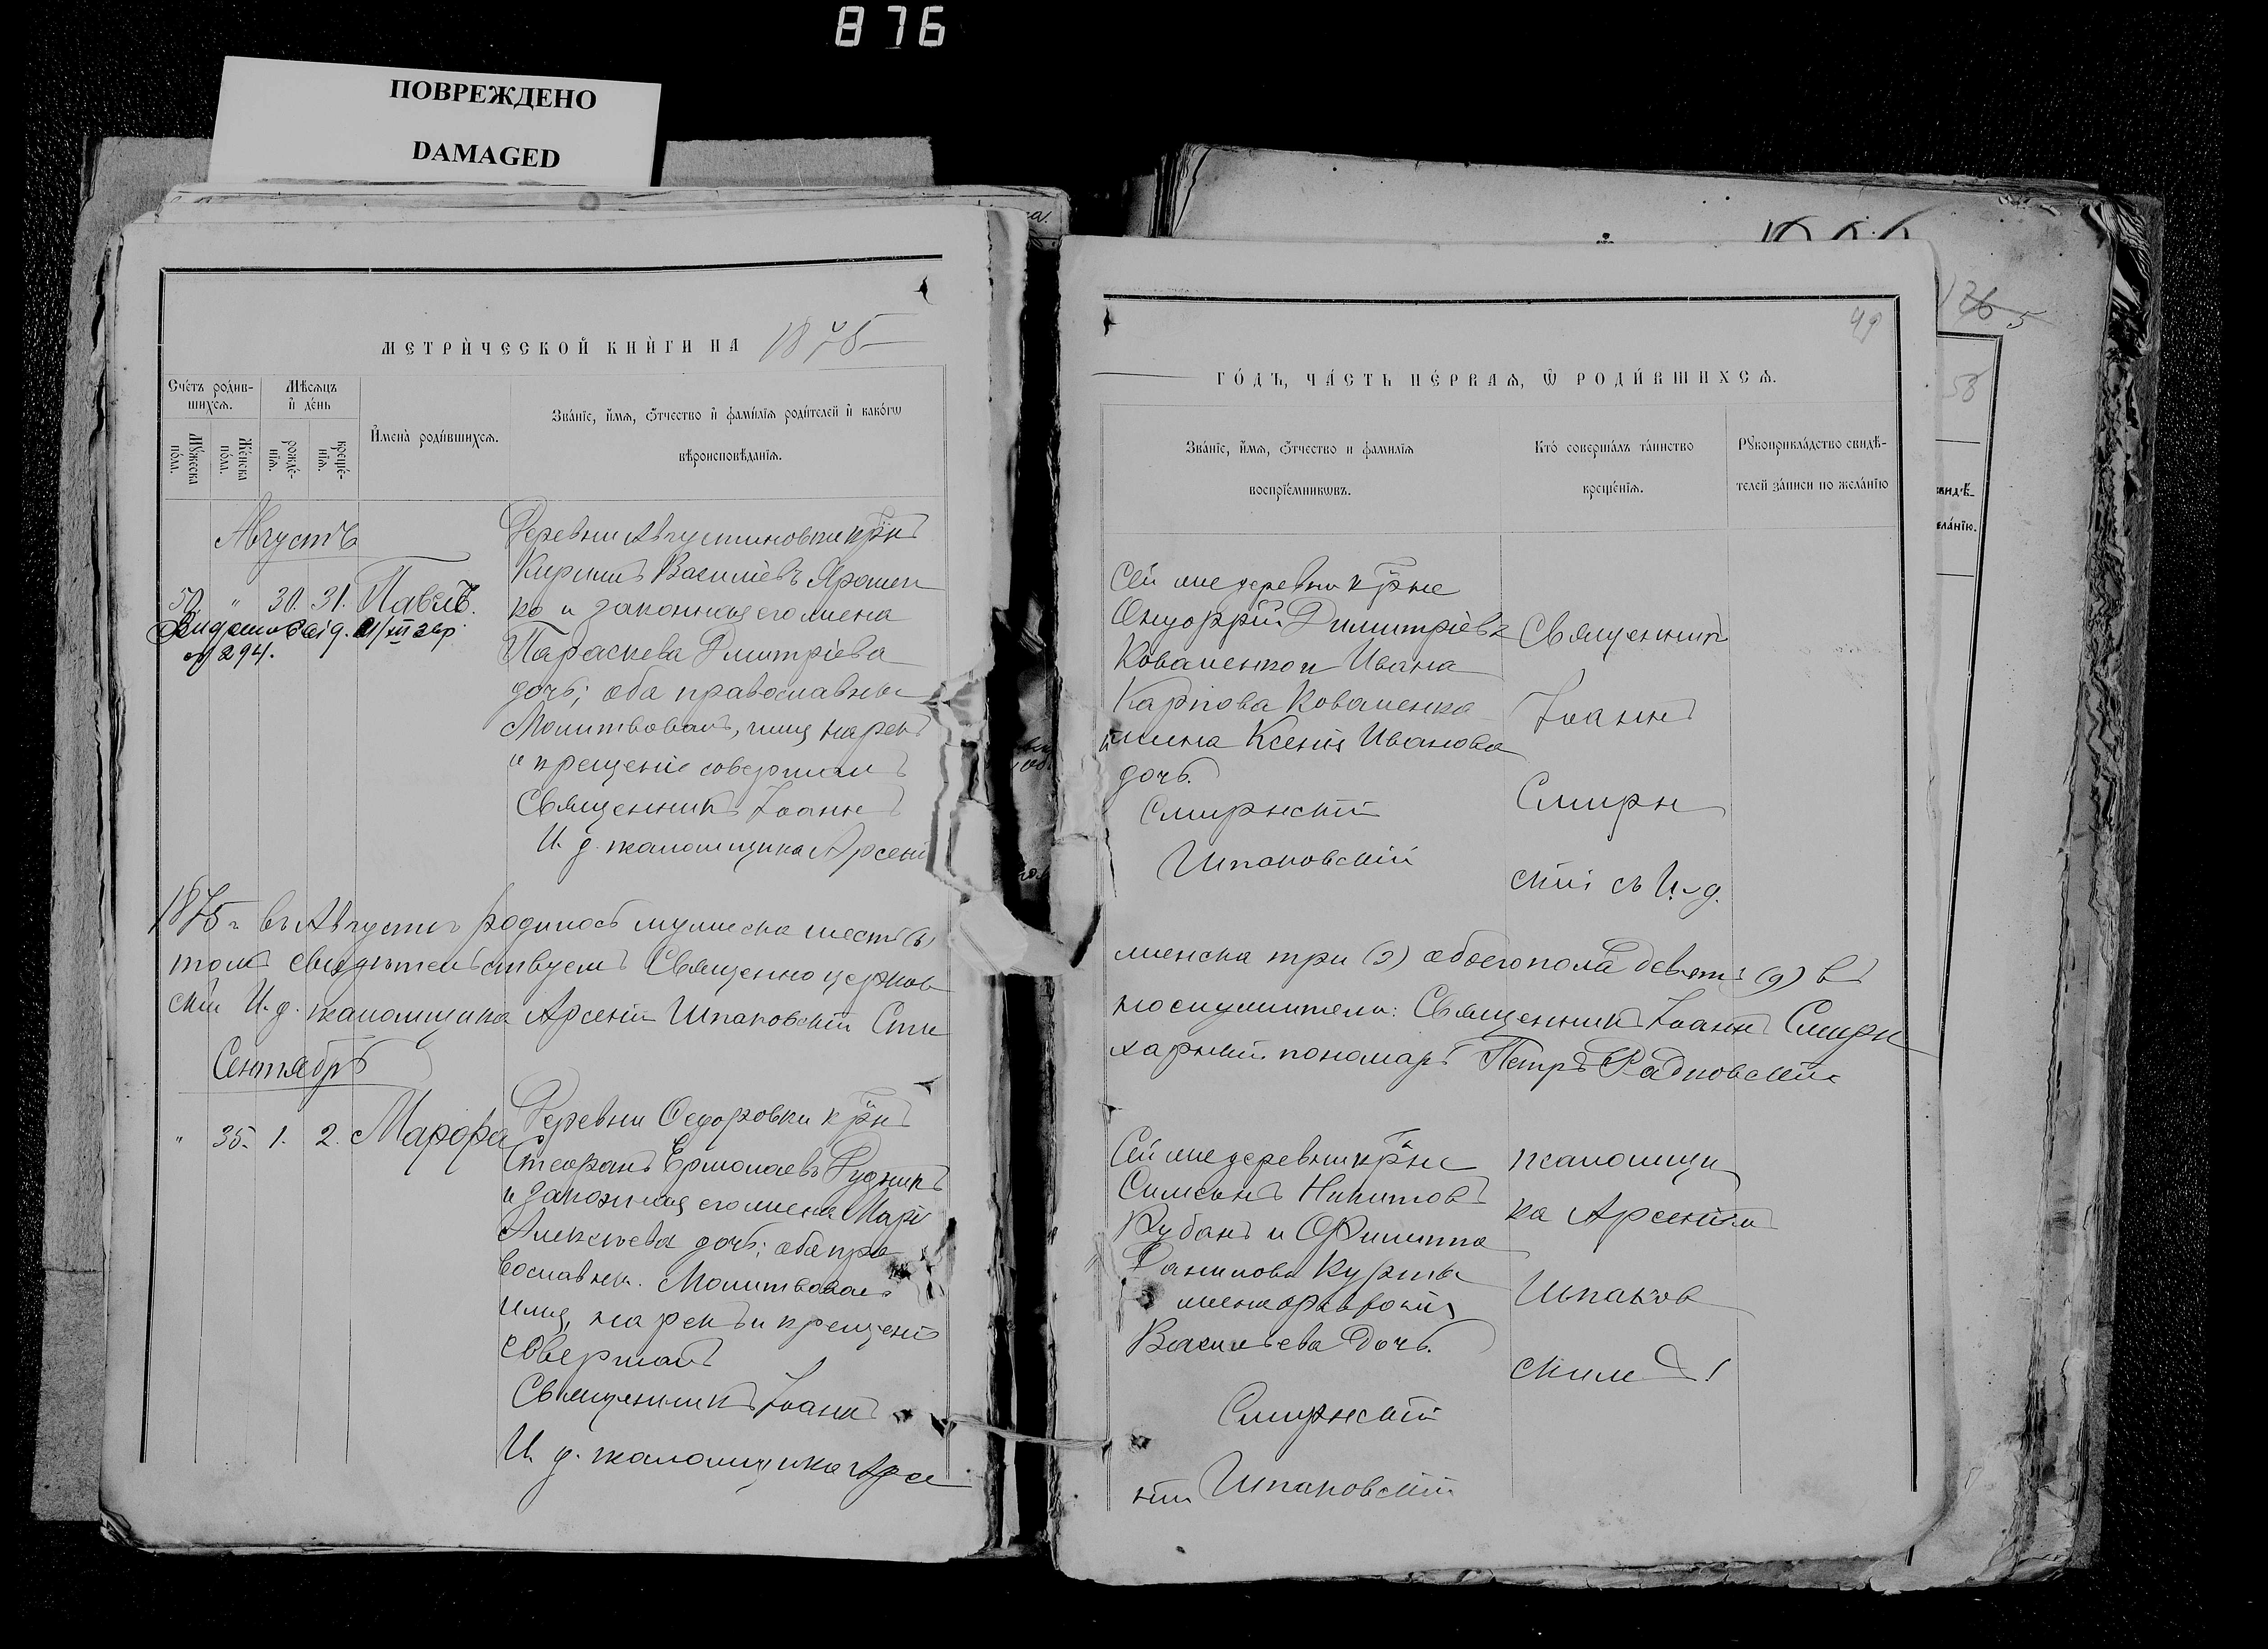 876
ПОВРЕЖДЕНО
DAMAGED
МЕТРИЧЕСКОЙ КНИГИ НА 1875
Счетъ родив-
шихся.
Мѣсяцъ
и день
Мꙋжеска
пола.
Женска
пола.
рожде-
нія.
креще-
нія.
Имена родившихся.
Званіе, имя, ѿчество и фамилія родителей и какогѡ
вѣроисповѣданія.
Августъ
50. " 30. 31. Павелъ.
№ 294.
Деревни Августиновки крн̃ъ
Кирилъ Василіевъ Ярошен
ко и законная его жена
Параскева Дмитріева
дочь; оба православны
Молитвовалъ, имя нарекъ
и крещеніе совершилъ
Священникъ Іоаннъ
И. д. псаломщика Арсеній
1875 г. въ Августѣ родилось мужеска шесть (6)
томъ свидѣтельствуемъ Священно церков
скій И. д. псаломщика Арсеній Шпаковскій Сти
Сентябрь
" 35. 1. 2. Марфа
Деревни Ѳедоровки крн̃ъ
Стефанъ Ермолаевъ Рудникъ
и законная его жена Марія
Алексѣева дочь; оба пра
вославны. Молитвовалъ
имя, нарекъ и крещеніе
совершилъ
Священникъ Іоаннъ
И. д. псаломщика Арсе
49
ГОДЪ, ЧАСТЬ ПЕРВАЯ, Ѡ РОДИВШИХСЯ.
Званіе, имя, ѿчество и фамилія
воспріемникѡвъ.
Кто совершалъ таинство
крещенія.
Рꙋкоприкладство свидѣ-
телей записи по желанію
Сей же деревни крн̃е
Димитріевъ
Коваленко и Ивана
Карпова Коваленка
жена Ксенія Иванова
дочь.
Смирнскій
Шпаковскій
Священникъ
Іоаннъ
Смирн
скій съ И. д.
женска три (3) обоего пола девять (9) въ
но служители: Священникъ Іоаннъ Смирн
харный пономарь Петръ Радковскій
Сей же деревни крн̃е
Симеонъ Никитовъ
Кубанъ и Филиппа
Данилова
Васильева Дочь.
Смирнскій
ній Шпаковскій
псаломщи
ка Арсеніем
Шпаков
скимъ
126 5
53
свидѣ-
еланію.